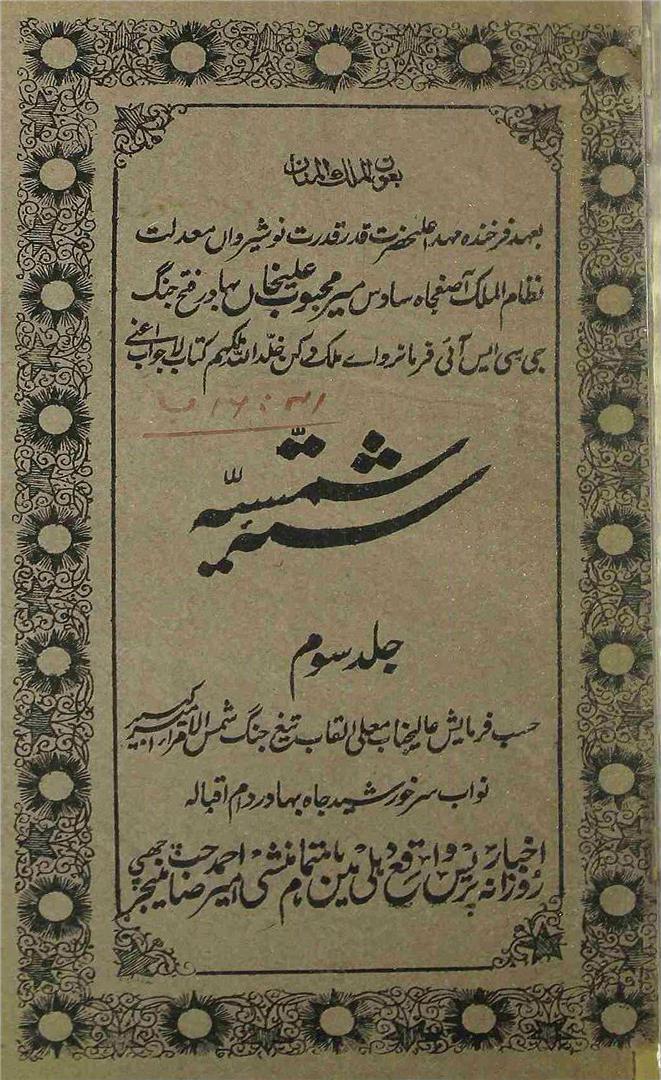 بعون الملك المنان
بعہد فرخندہ مہد اعلیحضرت قدر قدرت نوشیرواں معدلت
نظام الملک آصفجاہ سادس میر محبوب علیخاں بہادر فتح جنگ
جی سی ایس آئی فرمانرواے ملک دکن خلّد اللہ ملکہم کتاب لاجواب اعنے
۱۶:۳۱
شمسیّہ
جلد سوم
حسب فرمایش عالیجناب معلی القاب تیغ جنگ شمس الامرا امیر کبیر
نواب سر خورشید جاہ بہادر دام اقبالہ
روزانہ اخبار پریس واقع دہلی میں باہتمام منشی امیر احمد رضا منیجر چھپی